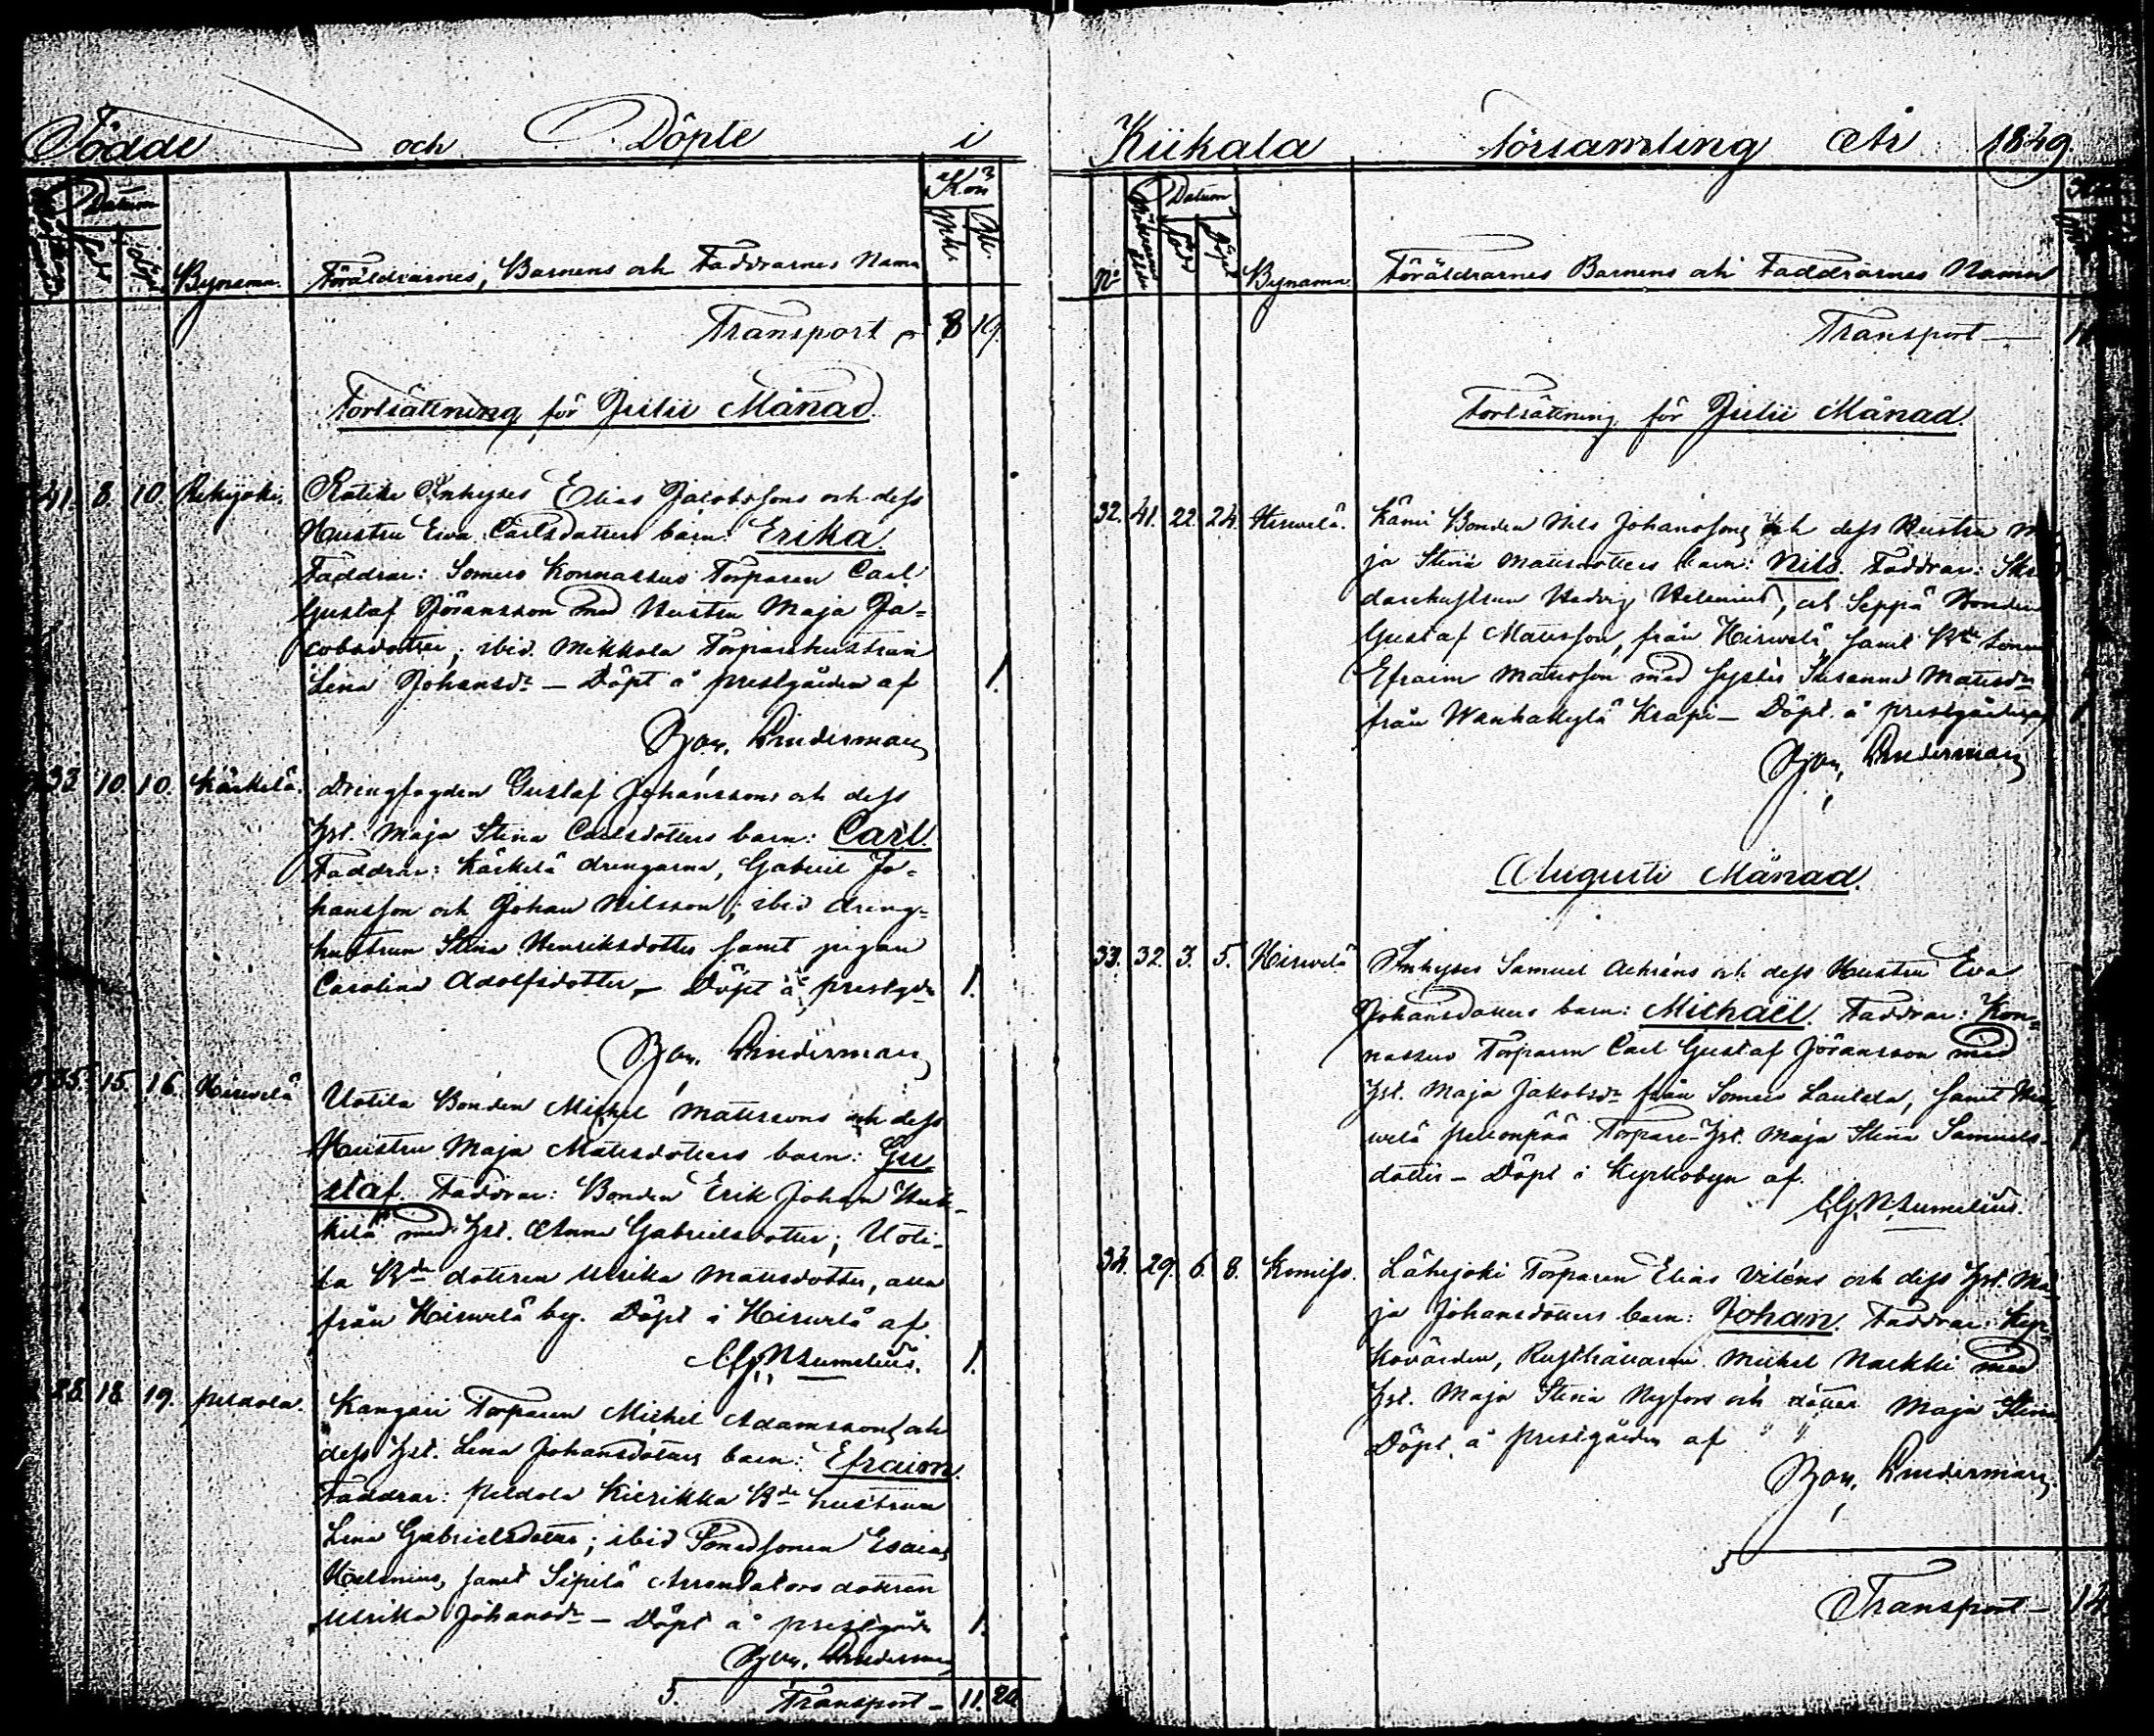 Födde och Döpte i
Datum
Kön
Bynamn. Föräldrarnes, Barnens och Faddrarnes Namn
Transport 8 19.
Fortsättning för Julii Månad.
41. 8. 10. Rekijoki. Inhyses Elias Jacobssons och dess
Hustru Ewa Carlsdotters barn: Erika.
Faddrar: Somero Konnassuo Torparen Carl
Gustaf Jöransson med Hustru Maja Ja=
cobsdotter; ibid. Mekkola Torparehustrun
Lena Johansdr – Döpt å prestgården af 1.
Joh. Linderman
33 10. 10. Kärkelä. Drengfogden Gustaf Johanssons och dess
Hst. Maja Stina Carlsdotters barn: Carl.
Faddrar: Kärkelä drengarna, Gabriel Jo=
hansson och Johan Nilsson; ibid dreng=
hustrun Stina Henriksdotter samt pigan
Carolina Adolfsdotter – Döpt å prestgdn 1.
Joh. Linderman
35. 15. 16. Hirwelä Uotila Bonden Michel Matssons och dess
Hustru Maja Matsdotters barn: Gu
staf. Faddrar: Bonden Erik Johan
kilä med Hst. Anna Gabrielsdotter; Uoti-
la Bde dottren Ulrika Matsdotter, alla
från Hirwelä by. Döpt i Hirwelä af
Numelius. 1.
38. 18. 19. Peldola. Kangari Torparen Michel Adamssons och
dess Hst. Lena Johansdotters barn: Efraim.
Faddrar: Peldola Kierikka Bde hustrun
Lena Gabrielsdotter; ibid Smedsonen Esaias
Helenius, samt Sipilä Arrendators dottren
Ulrika Johansdr – Döpt å prestgårdn 1.
Joh. Linderman
5. Transport – 11. 20
Kiikala församling År 1849.
Datum
No Bynamn. Föräldrarnes Barnens och Faddrarnes Namn
Transport —
Fortsättning för Julii Månad.
32. 41. 22. 24. Hirwelä. Kämi Bonden Nils Johanssons och dess Hustru
ja Stina Matsdotters barn: Nils. Faddrar:
darehustrun Hedvig Helenius, och Seppä Bonden
Gustaf Matsson, från Hirwelä, samt Bde sonen
Efraim Matsson med syster Susanna Matsdr
från Wanhakylä Krapi – Döpt å prestgården af 1
Joh. Linderman
Augusti Månad.
33. 32. 3. 5. Hirwelä Inhyses Samuel och dess Hustru Eva
Johansdotters barn: Michaël. Faddrar: Kon=
nassuo Torparen Carl Gustaf Jöransson med
Hst. Maja Jakobsdr från Somero Lautela, samt
welä Torpare-Hst. Maja Stina Samuels-
dotter – Döpt i Kyrkobyn af.
Numelius.
34. 29. 6. 8. Komisuo. Lähejoki Torparen Elias Viléns och dess Hst. Ma
ja Johansdotters barn: Johan. Faddrar: Kyr-
kovärden, Rusthållaren Michel Narkki med
Hst. Maja Stina Nyfors och dotter Maja Stina
Döpt å prestgården af
Joh. Linderman
5
Transport –